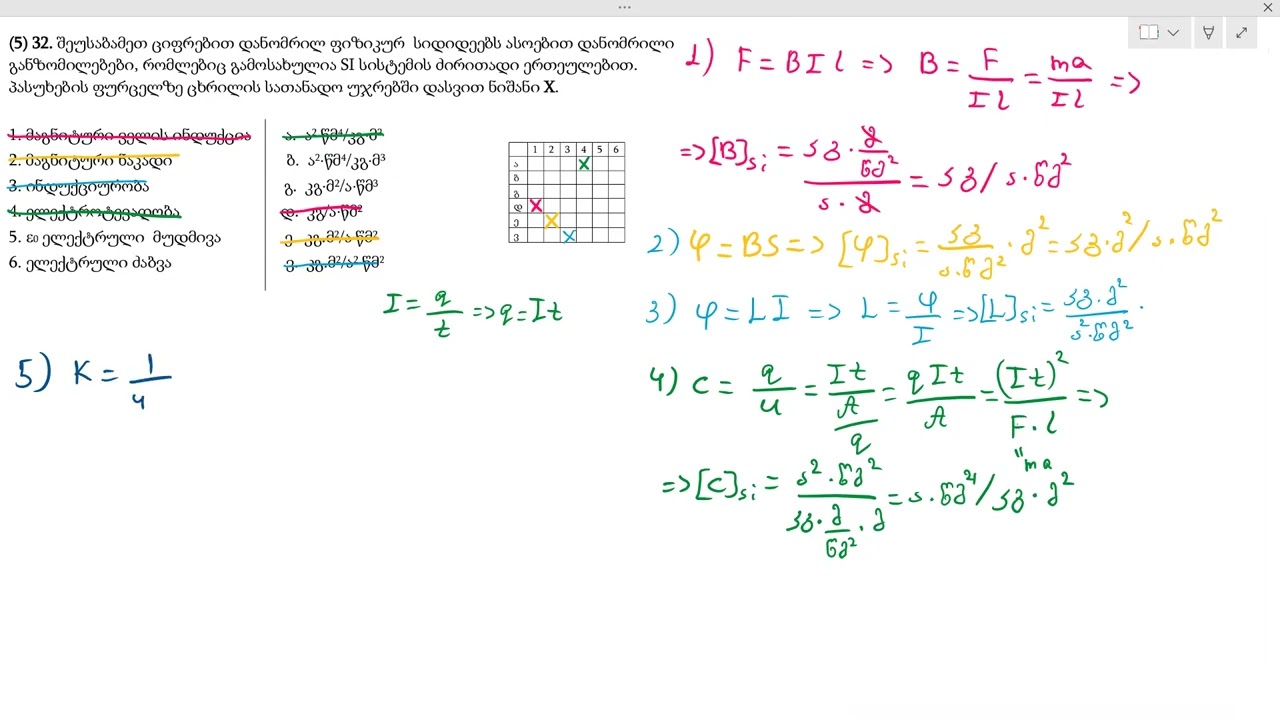 (5) 32. შეუსაბამეთ ციფრებით დანომრილ ფიზიკურ სიდიდეებს ასოებით დანომრილი
განზომილებები, რომლებიც გამოსახულია SI სისტემის ძირითადი ერთეულებით.
პასუხების ფურცელზე ცხრილის სათანადო უჯრებში დასვით ნიშანი X.
1. მაგნიტური ველის ინდუქცია
2. მაგნიტური ნაკადი
3. ინდუქციურობა
4. ელექტროტევადობა
5. ε₀ ელექტრული მუდმივა
6. ელექტრული ძაბვა
ა. ა²·წმ⁴/კგ·მ²
ბ. ა²·წმ⁴/კგ·მ³
გ. კგ·მ²/ა·წმ³
დ. კგ/ა·წმ²
ე. კგ·მ²/ა·წმ²
ვ. კგ·მ²/ა²·წმ²
1 2 3 4 5 6
ა X
ბ
გ
დ X
ე X
ვ X
1) F = B I l => B = F / I l = ma / I l =>
=> [B]si = კგ · მ/წმ² / ა · მ = კგ / ა · წმ²
2) φ = BS => [φ]si = კგ / ა·წმ² · მ² = კგ · მ² / ა · წმ²
3) φ = L I => L = φ / I => [L]si = კგ · მ² / ა² · წმ² ·
I = q / t => q = It
4) C = q / u = It / A / q = q It / A = (It)² / F · l =>
" ma
=> [C]si = ა² · წმ² / კგ · მ/წმ² · მ = ა · წმ⁴ / კგ · მ²
5) K = 1 / 4